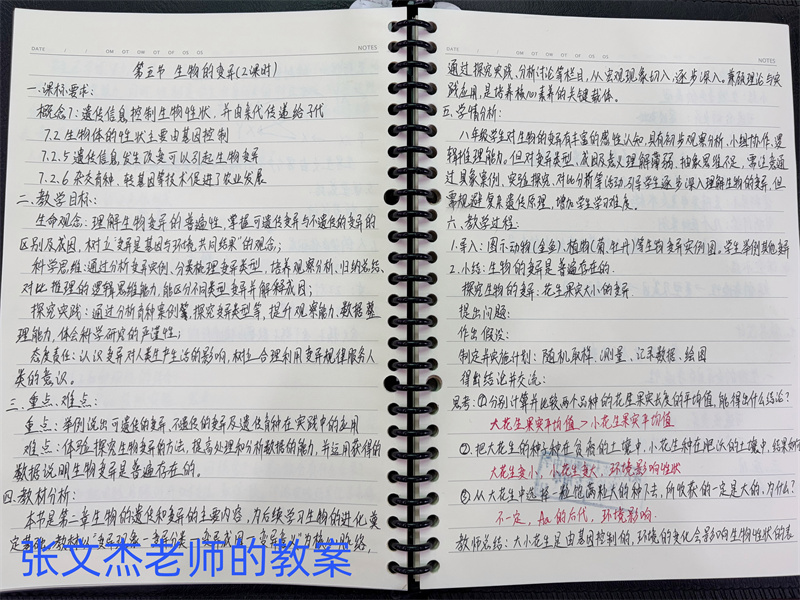 DATE / / OM OT OW OT OF OS OS NOTES
第五节 生物的变异(2课时)
一.课标要求:
概念7:遗传信息控制生物性状,并由亲代传递给子代
7.2 生物体的性状主要由基因控制
7.2.5 遗传信息发生改变可以引起生物变异
7.2.6 杂交育种、转基因等技术促进了农业发展
二.教学目标:
生命观念:理解生物变异的普遍性,掌握可遗传变异与不遗传的变异的
区别及成因,树立"变异是基因与环境共同结果"的观念;
科学思维:通过分析变异实例,分类梳理变异类型,培养观察分析、归纳总结、
对比推理的逻辑思维能力,能区分不同类型变异并解释成因;
探究实践:通过分析育种案例等,探究变异类型等,提升观察能力、数据整
理能力,体会科学研究的严谨性;
态度责任:认识变异对人类生产生活的影响,树立合理利用变异规律服务人
类的意识。
三.重点、难点:
重点:举例说出可遗传的变异、不遗传的变异及遗传育种在实践中的应用
难点:体验探究生物变异的方法,提高处理和分析数据的能力,并运用获得的
数据说明生物变异是普遍存在的。
四.教材分析:
本节是第二章生物的遗传和变异的主要内容,为后续学习生物的进化奠
张文杰老师的教案
DATE / / OM OT OW OT OF OS OS NOTES
通过探究实践、分析讨论等栏目,从宏观现象切入,逐步深入。兼顾理论与实
践应用,是培养核心素养的关键载体。
五.学情分析:
八年级学生对生物的变异有丰富的感性认知,具有初步观察分析、小组协作、逻
辑推理能力,但对变异类型、成因及意义理解薄弱,抽象思维不足,需注意通
过具象案例、实验探究、对比分析等活动,引导学生逐步深入理解生物的变异,但
需规避复杂遗传原理,增加学生学习难度。
六.教学过程:
1.导入:图示动物(金鱼)、植物(菊、牡丹)等生物变异实例图。学生举例其他变异
2.小结:生物的变异是普遍存在的.
探究生物的变异:花生果实大小的变异.
提出问题:
作出假设:
制定并实施计划:随机取样、测量、记录数据、绘图
得出结论并交流:
思考:①分别计算并比较两个品种的花生果实长度的平均值,能得出什么结论?
大花生果实平均值>小花生果实平均值
②.把大花生的种子种在贫瘠的土壤中,小花生种在肥沃的土壤中,结果如何
大花生变小,小花生变大,环境影响性状
③从大花生中选择一粒饱满粒大的种下去,所收获的一定是大的,为什么?
不一定,Aa的后代,环境影响.
教师总结:大小花生是由基因控制的,环境的变化会影响生物性状的表